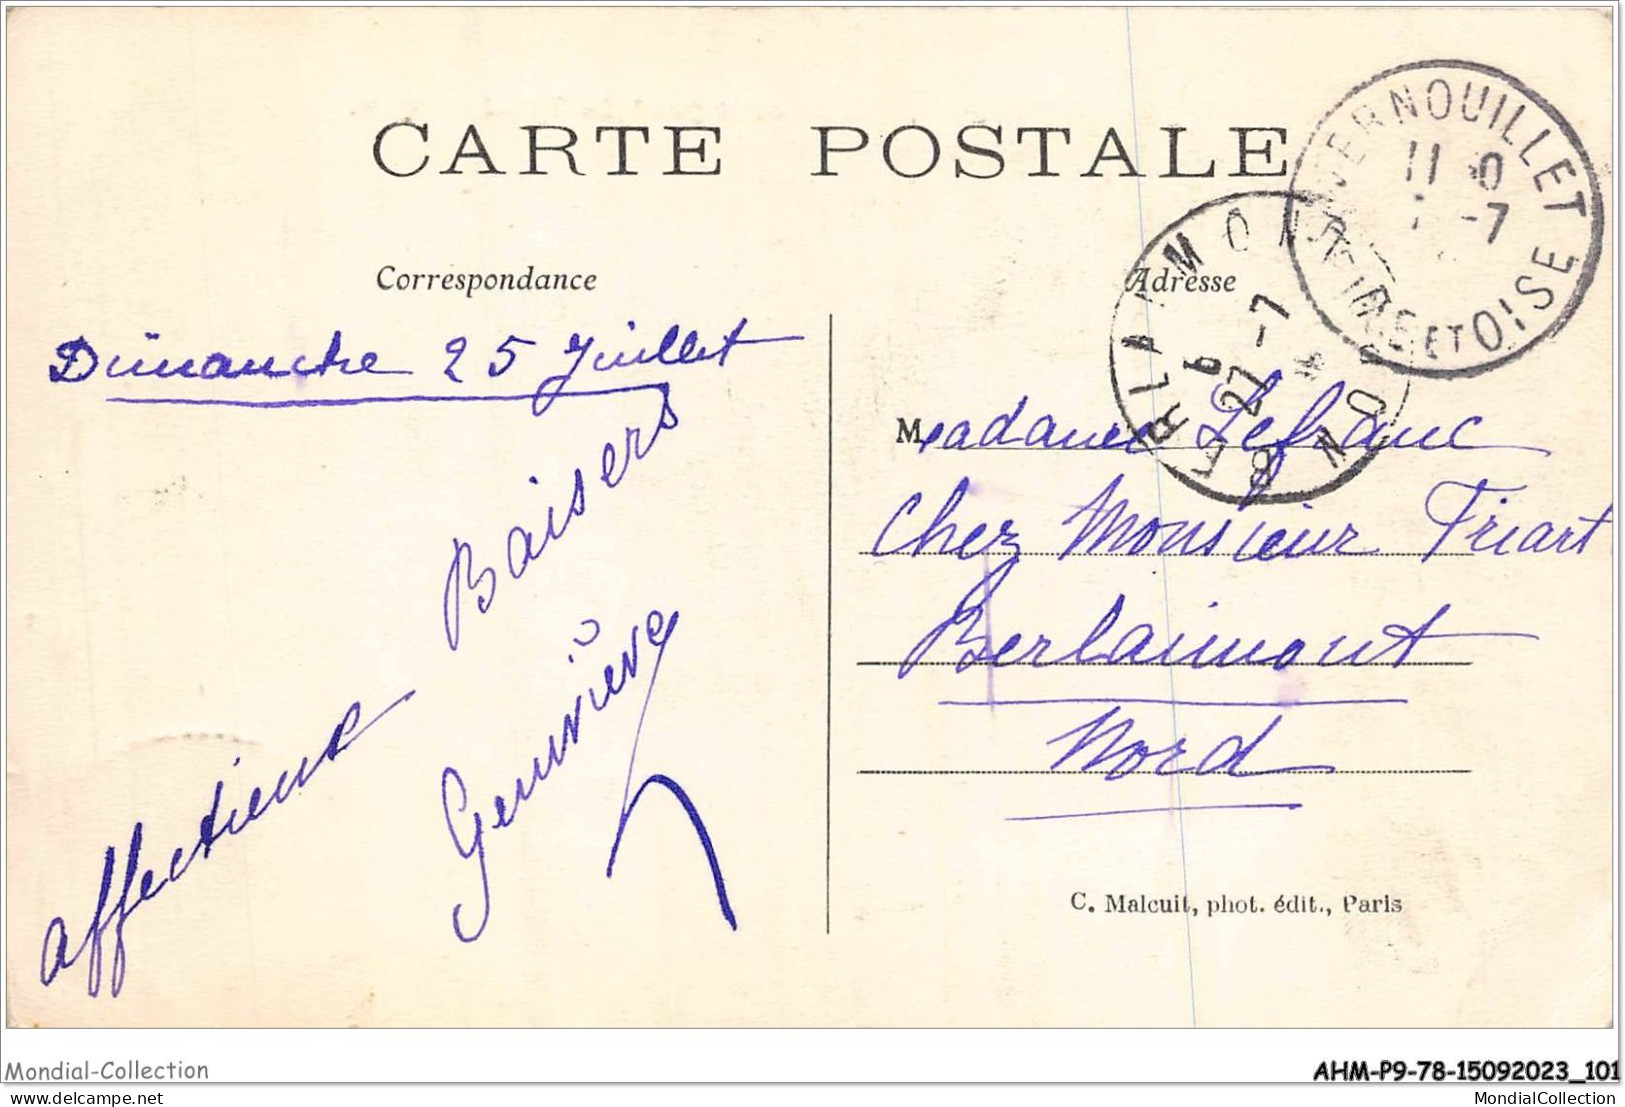 CARTE POSTALE
VERNOUILLET
11 30
-7
SEINE ET OISE
BERLAIMONT
6
27-7
NORD
Correspondance
Adresse
Dimanche 25 Juillet
Affectieux
Baisers
Geneviève
Madame Lefranc
Chez Monsieur Friart
Berlaimont
Nord
C. Malcuit, phot. édit., Paris
Mondial-Collection
AHM-P9-78-15092023_101
delcampe.net
MondialCollection